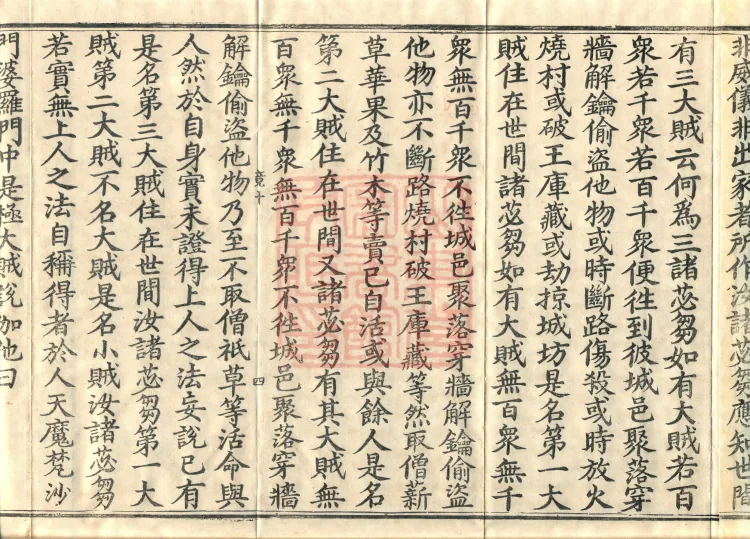 非威儀非出家者所作汝諸苾芻應知世間
有三大賊云何爲三諸苾芻如有大賊若百
衆若千衆若百千衆便徃到彼城邑聚落穿
牆解鑰偷盜他物或時斷路傷殺或時放火
燒村或破王庫藏或劫掠城坊是名第一大
賊住在世間諸苾芻如有大賊無百衆無千
衆無百千衆不徃城邑聚落穿牆解鑰偷盜
他物亦不斷路燒村破王庫藏等然取僧薪
草華果及竹木等賣已自活或與餘人是名
第二大賊住在世間又諸苾芻有其大賊無
百衆無千衆無百千衆不徃城邑聚落穿牆
竟十 四
解鑰偷盜他物乃至不取僧祇草等活命與
人然於自身實未證得上人之法妄說已有
是名第三大賊住在世間汝諸苾芻第一大
賊第二大賊不名大賊是名小賊汝諸苾芻
若實無上人之法自稱得者於人天魔梵沙
門婆羅門中是極大賊說伽他曰